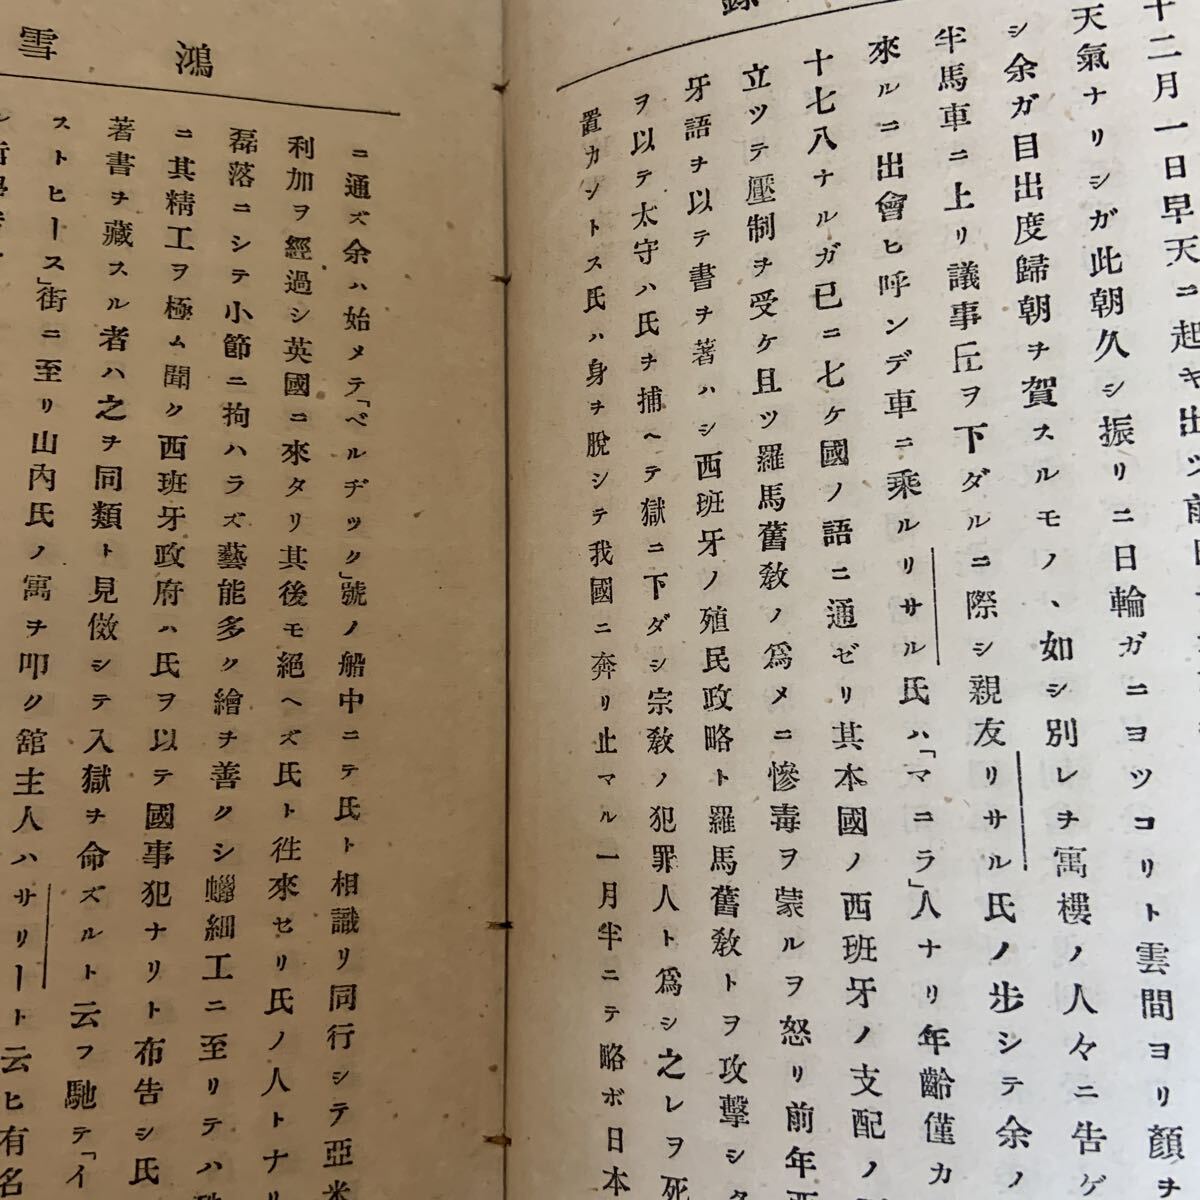 錄
十二月一日早天ニ起キ出ツ前日
天氣ナリシガ此朝久シ振リニ日輪ガニヨツコリト雲間ヨリ顏ヲ
シ余ガ目出度歸朝ヲ賀スルモノヽ如シ別レヲ寓樓ノ人々ニ告ゲ
半馬車ニ上リ議事丘ヲ下ダルニ際シ親友リサル氏ノ步シテ余ノ
來ルニ出會ヒ呼ンデ車ニ乘ルリサル氏ハ「マニラ」人ナリ年齡僅カ
十七八ナルガ已ニ七ケ國ノ語ニ通ゼリ其本國ノ西班牙ノ支配ノ
立ツテ壓制ヲ受ケ且ツ羅馬舊敎ノ爲メニ慘毒ヲ蒙ルヲ怒リ前年西
牙語ヲ以テ書ヲ著ハシ西班牙ノ殖民政略ト羅馬舊敎トヲ攻擊シタ
ヲ以テ太守ハ氏ヲ捕ヘテ獄ニ下ダシ宗敎ノ犯罪人ト爲シ之レヲ死
置カントス氏ハ身ヲ脫シテ我國ニ奔リ止マル一月半ニテ略ボ日本
鴻雪
ニ通ズ余ハ始メテ「ベルヂツク」號ノ船中ニテ氏ト相識リ同行シテ亞米
利加ヲ經過シ英國ニ來タリ其後モ絕ヘズ氏ト徃來セリ氏ノ人トナリ
磊落ニシテ小節ニ拘ハラズ藝能多ク繪ヲ善クシ蠟細工ニ至リテハ
ニ其精工ヲ極ム聞ク西班牙政府ハ氏ヲ以テ國事犯ナリト布告シ氏
著書ヲ藏スル者ハ之ヲ同類ト見做シテ入獄ヲ命ズルト云フ馳テ「イ
ストヒース」街ニ至リ山內氏ノ寓ヲ叩ク舘主人ハサリート云ヒ有名